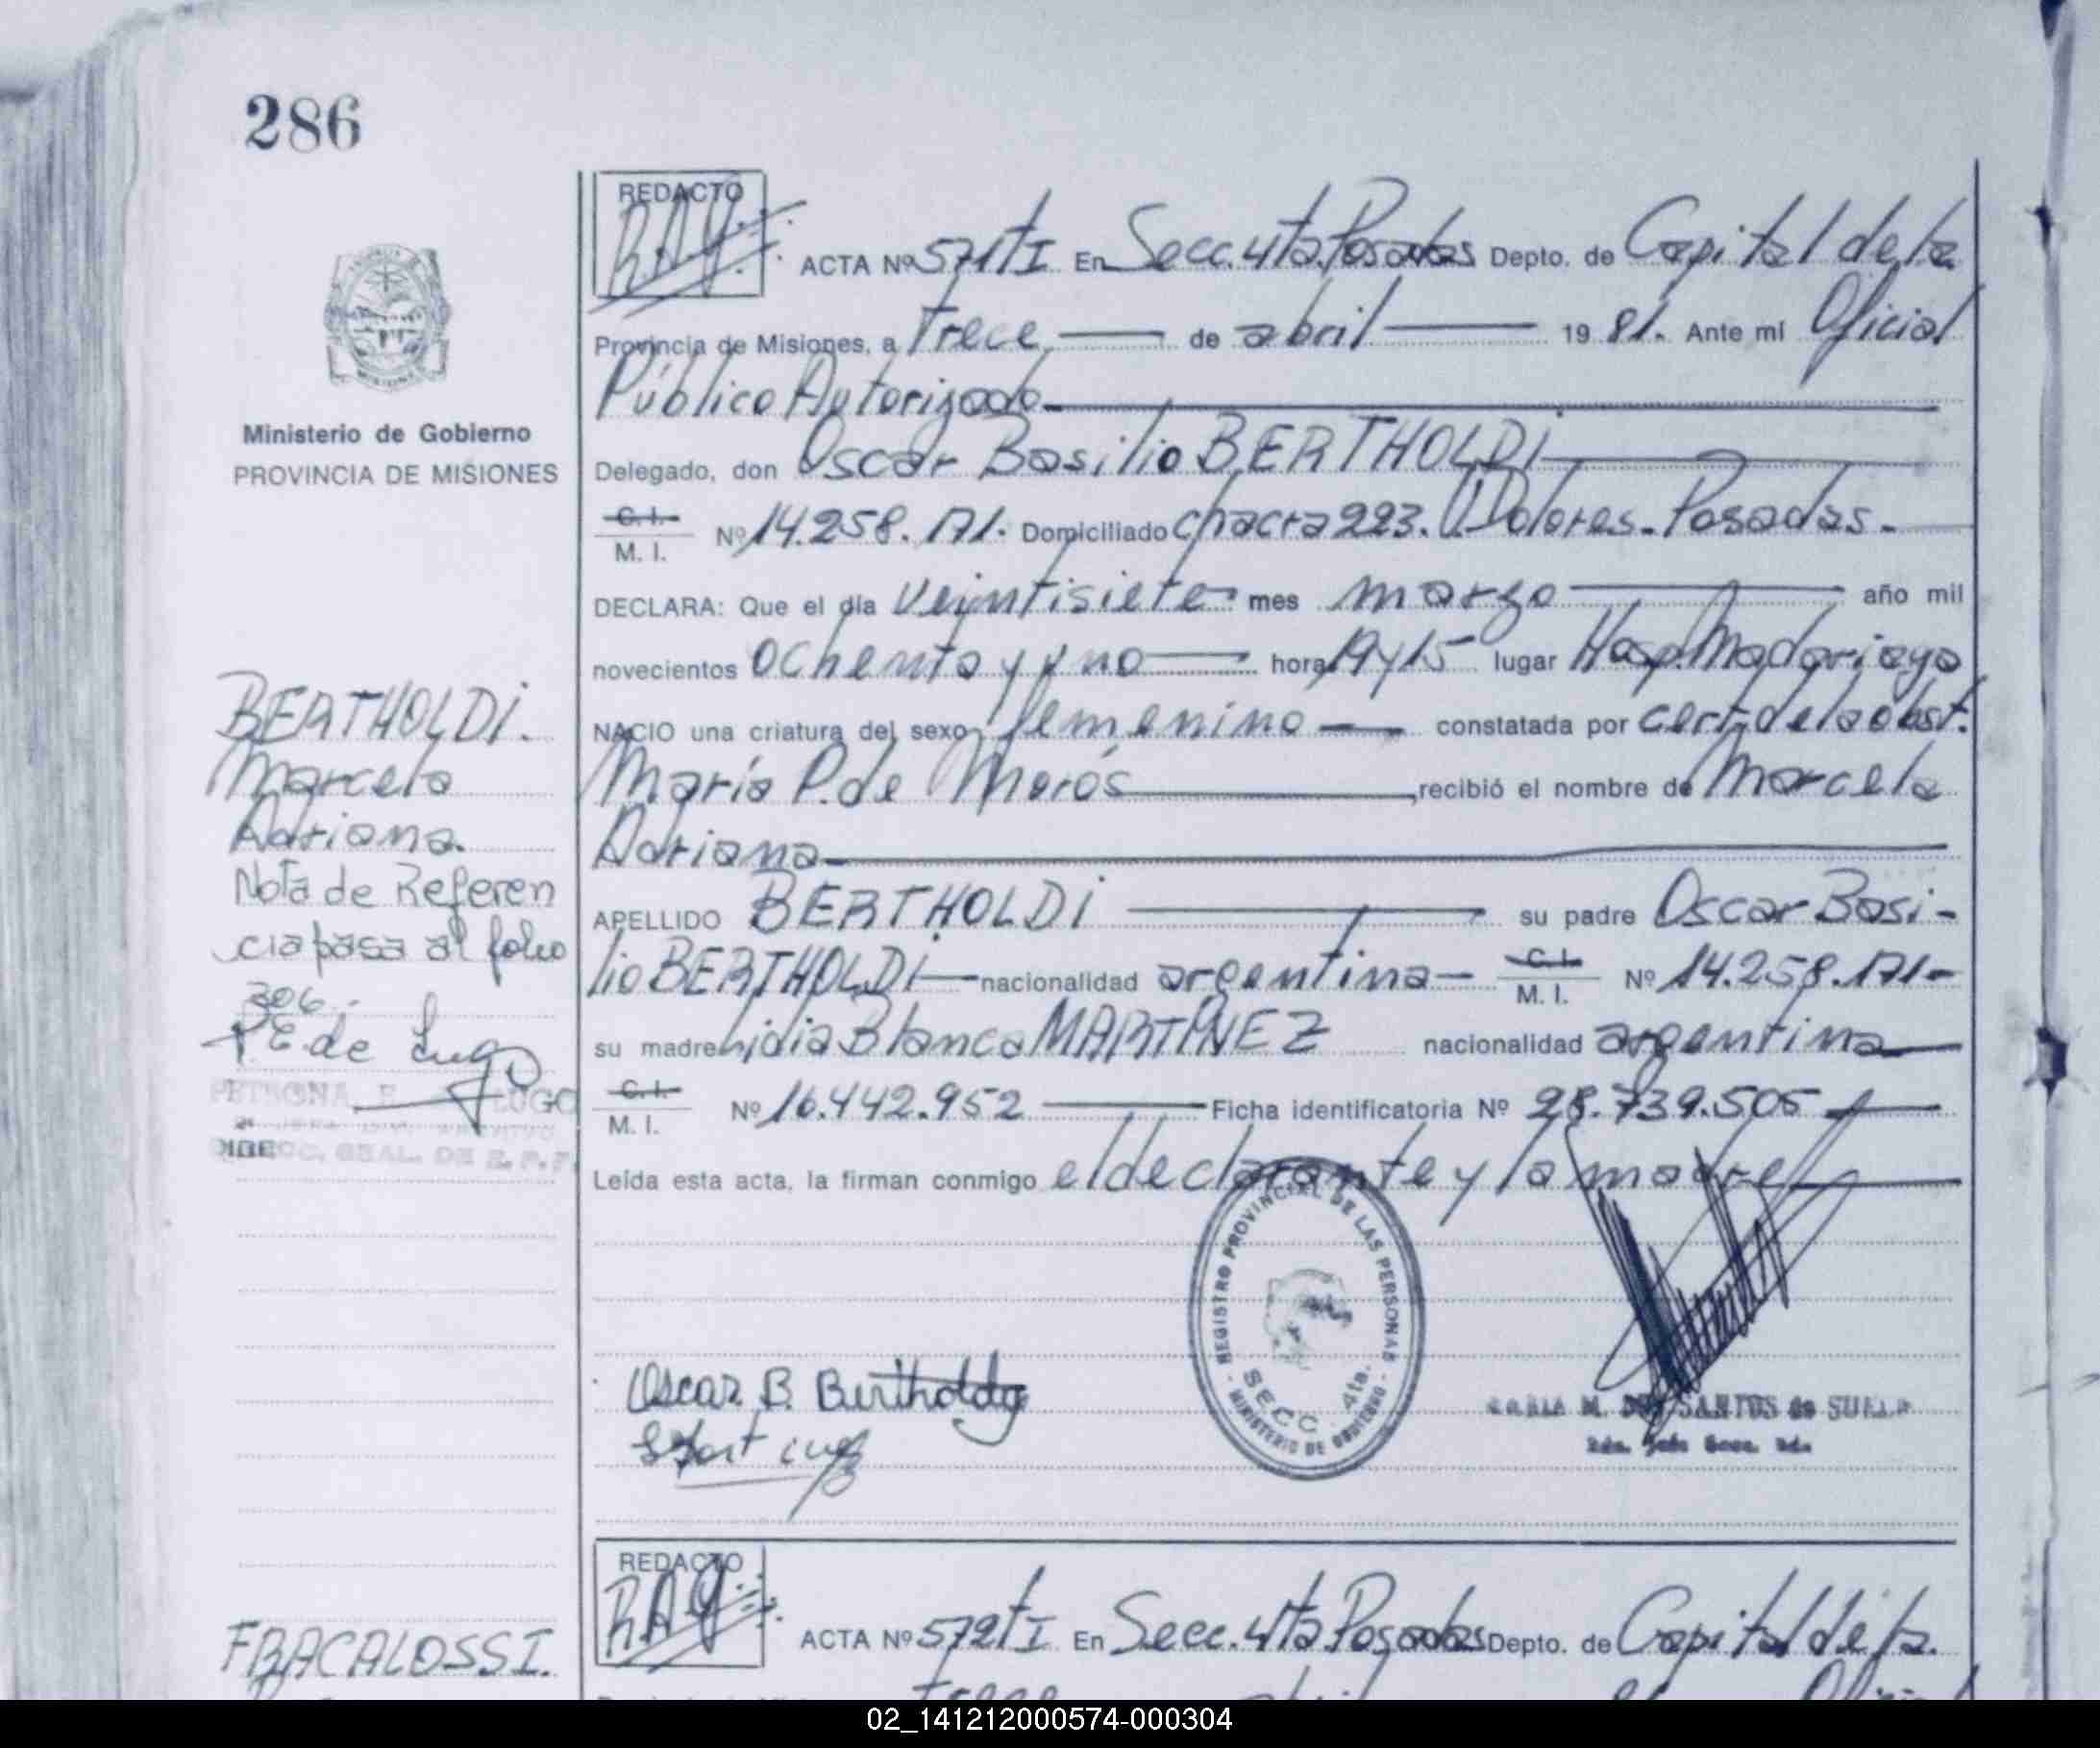 286
REDACTO
ACTA Nº 571 tI En Secc. 4ta. Posadas Depto. de Capital de la
Provincia de Misiones, a Trece de abril 19 81. Ante mí Oficial
Público Autorizado
Delegado, don Oscar Basilio BERTHOLDI
C. I.
M. I.
Nº 14.258.171. Domiciliado chacra 223. V. Dolores. Posadas.
DECLARA: Que el día Veintisiete mes marzo año mil
novecientos Ochenta y uno hora 19 y 15 lugar Hosp. Madariaga
NACIO una criatura del sexo femenino constatada por cert. de la obst.
María P. de Morós recibió el nombre de Marcela
Adriana
APELLIDO BERTHOLDI su padre Oscar Basi-
lio BERTHOLDI nacionalidad argentina C. I. M. I. Nº 14.258.171-
su madre Lidia Blanca MARTINEZ nacionalidad argentina
C. I.
M. I.
Nº 16.442.952 Ficha identificatoria Nº 28.739.505
Leída esta acta, la firman conmigo el declarante y la madre
Ministerio de Gobierno
PROVINCIA DE MISIONES
BERTHOLDI.
Marcela
Adriana.
Nota de Referen
cia pasa al folio
306.-
P. E de Lugo
PETRONA. E. LUGO
DIRECC. GRAL. DE R. P. P.
REGISTRO PROVINCIAL DE LAS PERSONAS
SECC. 4ta.
MINISTERIO DE GOBIERNO
Oscar B. Bertholdy
M. DOS SANTOS de
REDACTO
ACTA Nº 572 tI En Secc. 4ta Posadas Depto. de Capital de la.
FRACALOSSI.
Trece abril Oficial
02_141212000574-000304